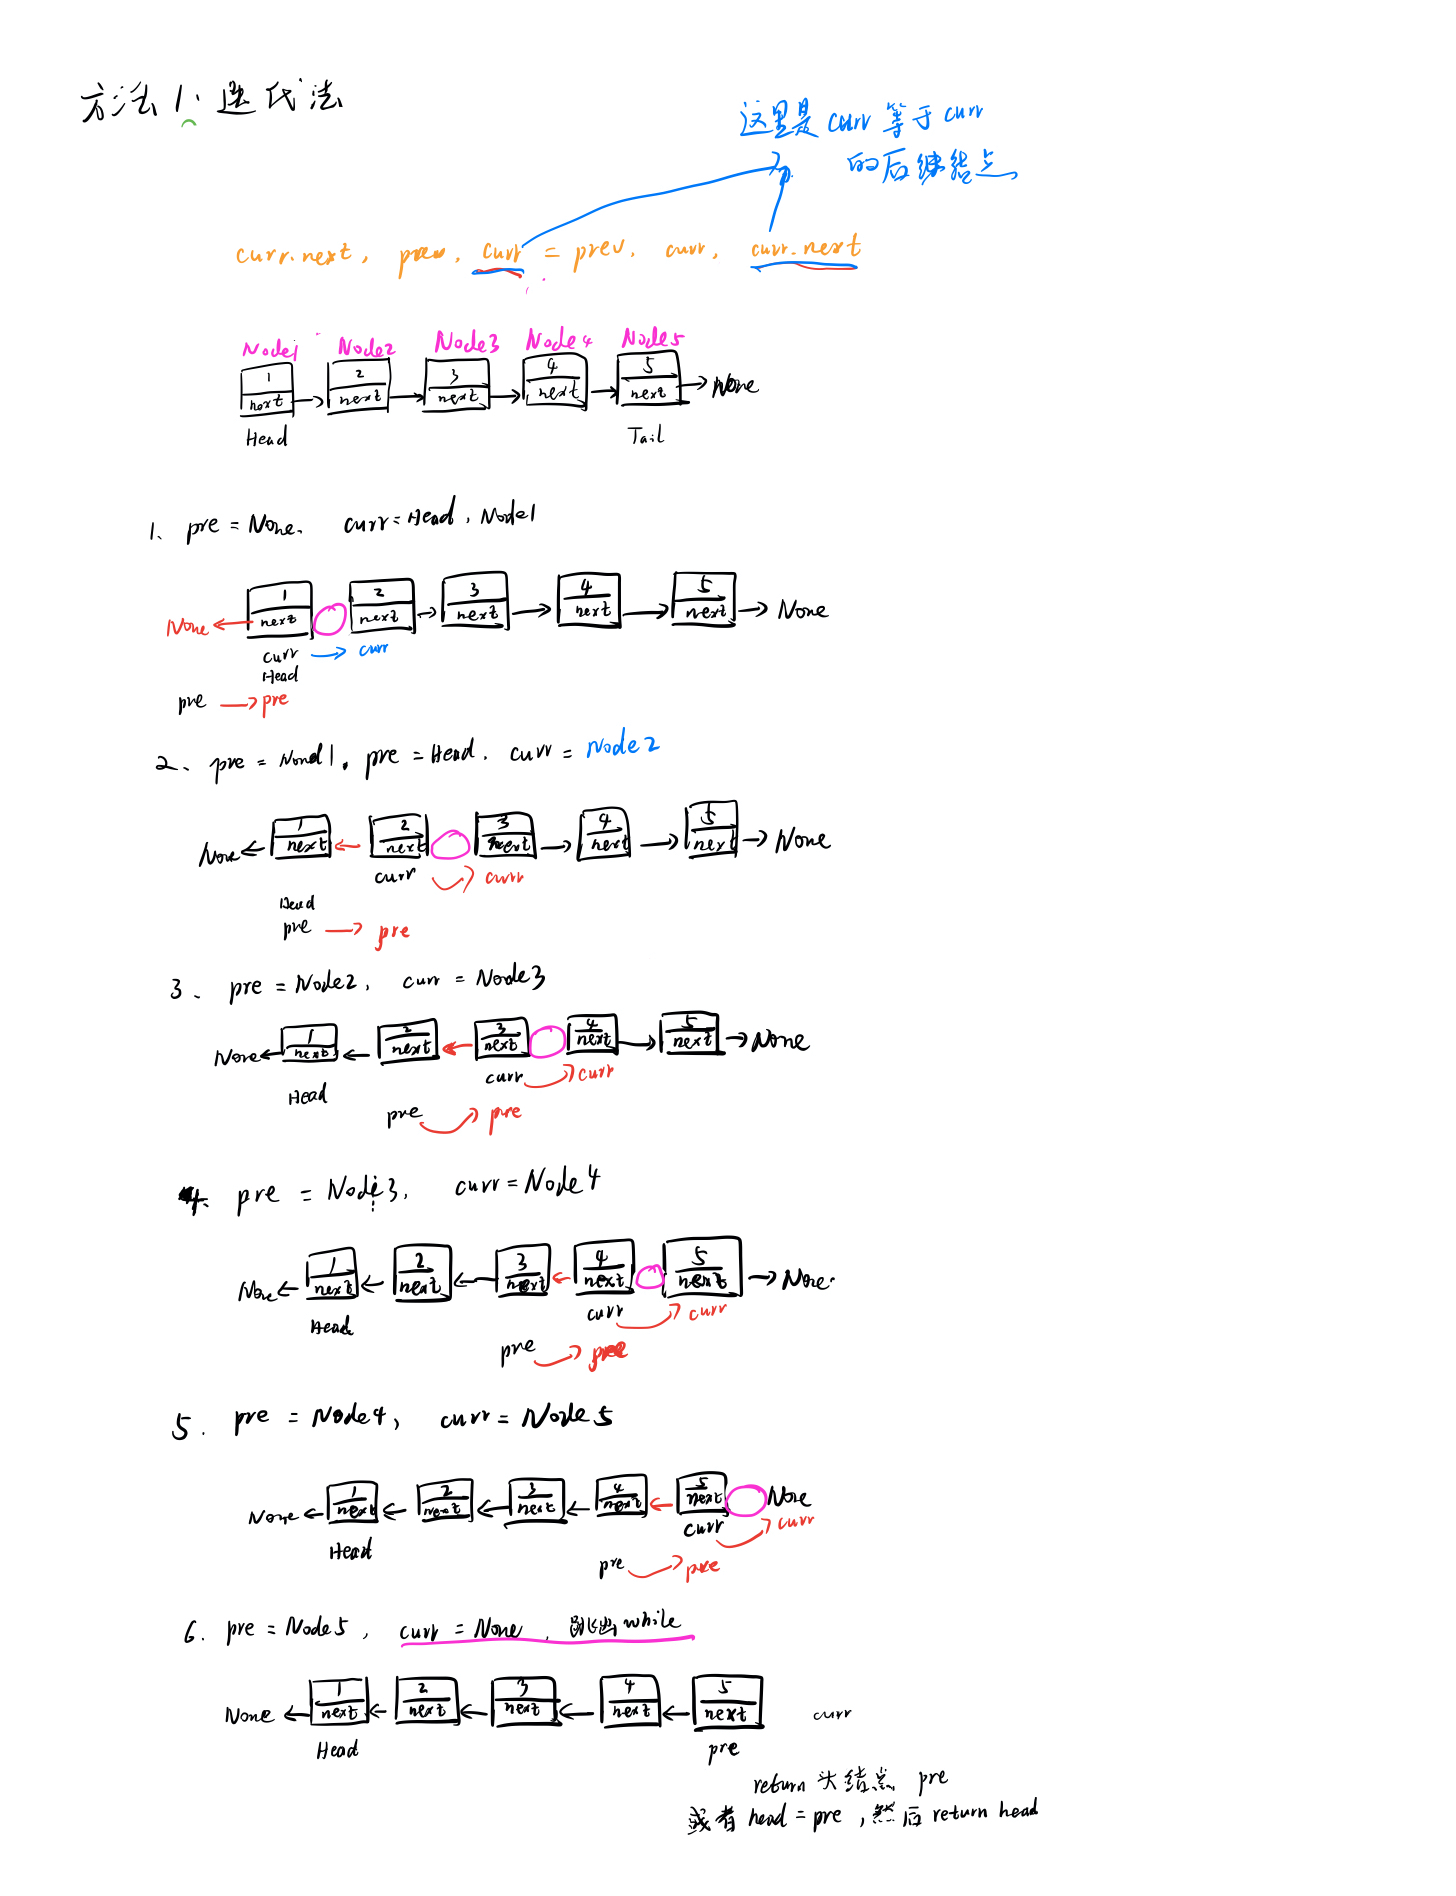 方法1. 迭代法
这里是curr等于curr
的后继结点
curr.next, prev, curr = prev, curr, curr.next
Node1 Node2 Node3 Node4 Node5
1 2 3 4 5
next next next next next None
Head Tail
1、 pre = None. curr = Head, Node1
1 2 3 4 5
None next next next next next None
curr curr
Head
pre pre
2、 pre = Nond1, pre = Head. curr = Node2
1 2 3 4 5
None next next next next next None
curr curr
Head
pre pre
3、 pre = Node2, curr = Node3
1 2 3 4 5
None next next next next next None
curr curr
Head
pre pre
4. pre = Node3, curr = Node4
1 2 3 4 5
None next next next next next None.
curr curr
Head
pre pre
5. pre = Node4, curr = Node5
1 2 3 4 5
None next next next next next None
curr curr
Head
pre pre
6. pre = Node5, curr = None, 跳出while
1 2 3 4 5
None next next next next next curr
Head pre
return 头结点 pre
或者 head = pre, 然后 return head